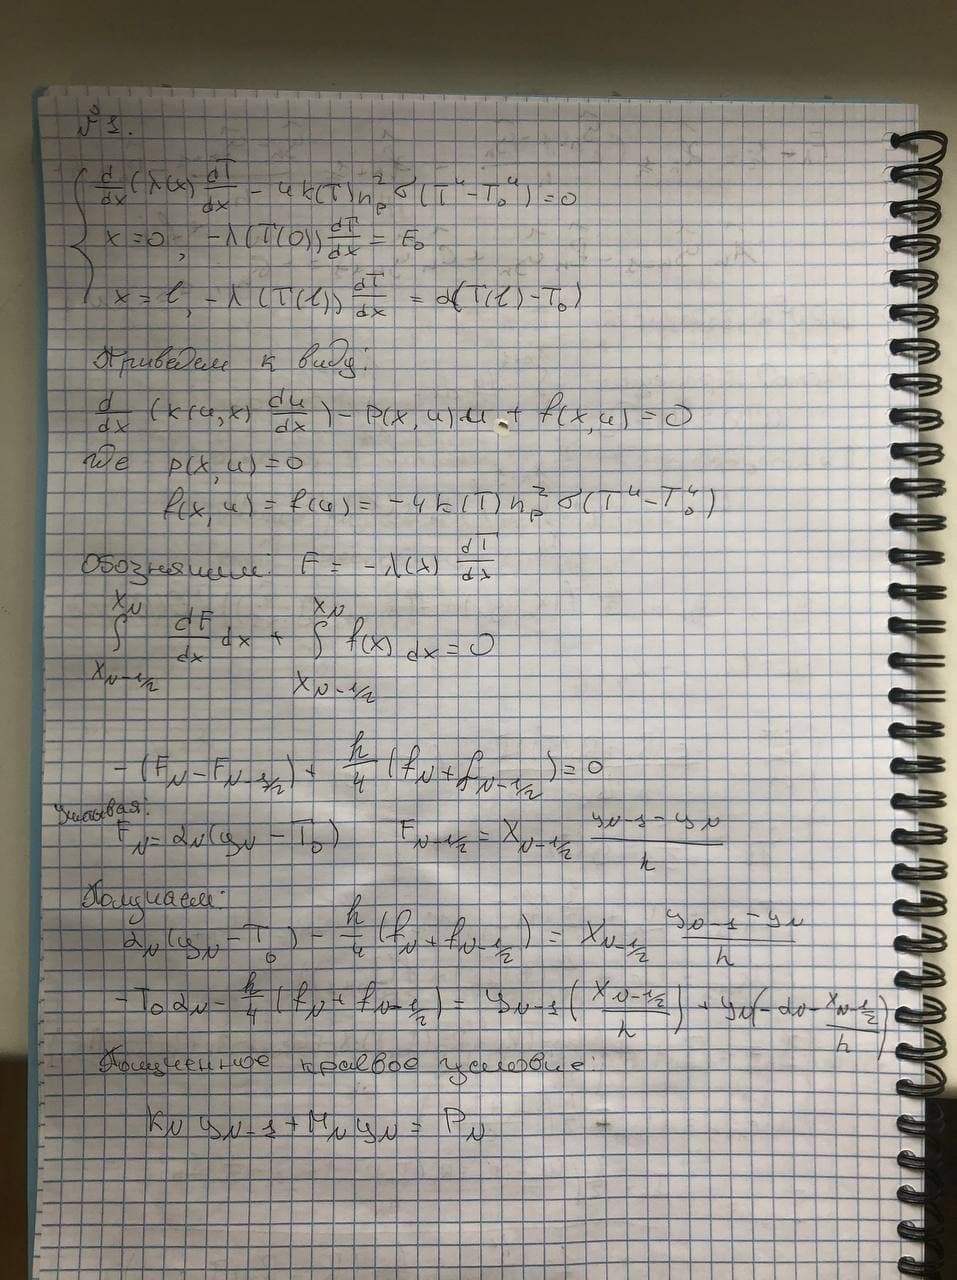 №1.
d/dx (λ(x) dT/dx - 4k(T)n_p^2 σ(T^4 - T_0^4) = 0
x=0, -λ(T(0)) dT/dx = F_0
x=l, -λ(T(l)) dT/dx = α(T(l) - T_0)
Приведем к виду:
d/dx (k(u,x) du/dx) - p(x,u)u + f(x,u) = 0
где p(x,u)=0
f(x,u) = f(u) = -4k(T)n_p^2 σ(T^4 - T_0^4)
Обозначим: F = -λ(x) dT/dx
∫_{x_{N-1/2}}^{x_N} dF/dx dx + ∫_{x_{N-1/2}}^{x_N} f(x) dx = 0
-(F_N - F_{N-1/2}) + h/4 (f_N + f_{N-1/2}) = 0
Учитывая:
F_N = α_N(y_N - T_0) F_{N-1/2} = χ_{N-1/2} (y_{N-1} - y_N)/h
Получаем:
α_N(y_N - T_0) - h/4 (f_N + f_{N-1/2}) = χ_{N-1/2} (y_{N-1} - y_N)/h
-T_0 α_N - h/4 (f_N + f_{N-1/2}) = y_{N-1} (χ_{N-1/2}/h) + y_N (-α_N - χ_{N-1/2}/h)
Полученное краевое условие:
K_N y_{N-1} + M_N y_N = P_N